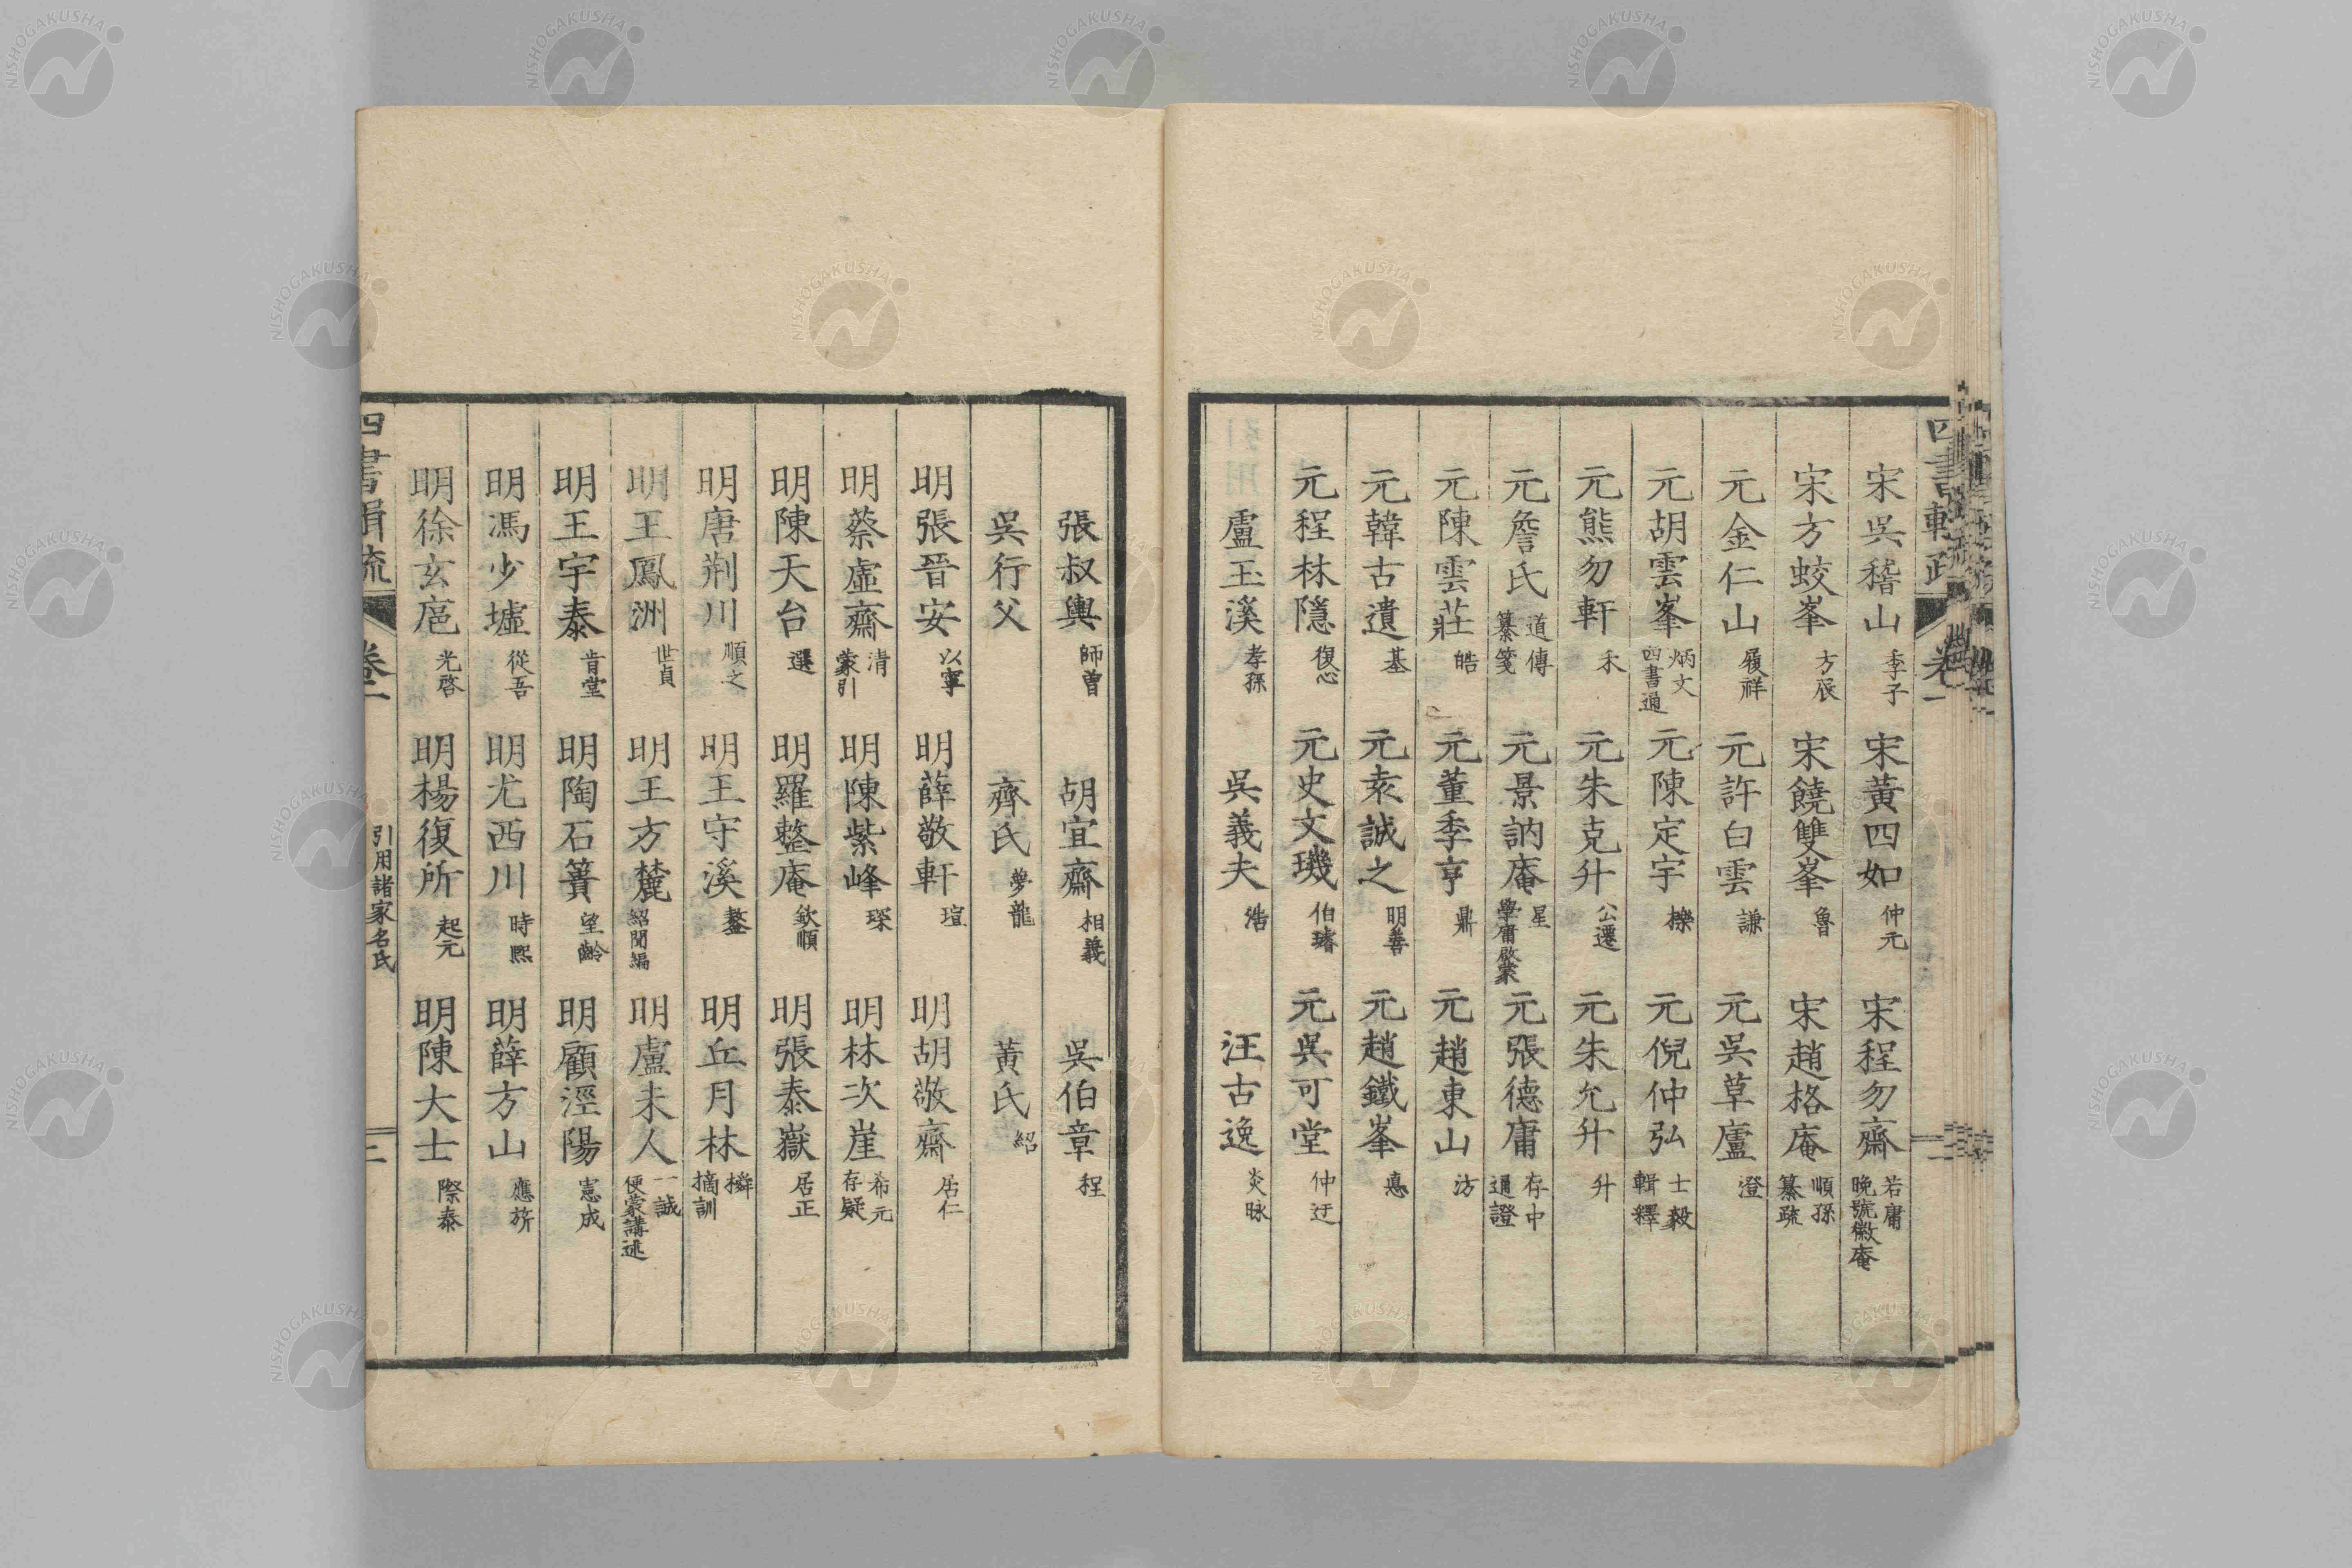 宋吳稽山季子 宋黃四如仲元 宋程勿齋若庸晚號徽庵
宋方蛟峯方辰 宋饒雙峯魯 宋趙格庵順孫纂疏
元金仁山履祥 元許白雲謙 元吳草廬澄
元胡雲峯炳文四書通 元陳定宇櫟 元倪仲弘士毅輯釋
元熊勿軒禾 元朱克升公遷 元朱允升升
元詹氏道傳纂箋 元景訥庵星學庸啟蒙 元張德庸存中通證
元陳雲莊皓 元董季亨鼎 元趙東山汸
元韓古遺基 元袁誠之明善 元趙鐵峯悳
元程林隱復心 元史文璣伯璿 元吳可堂仲迂
盧玉溪孝孫 吳義夫浩 汪古逸炎昹
張叔輿師曾 胡宜齋相義 吳伯章程
吳行父 齊氏夢龍 黃氏紹
明張晉安以寧 明薛敬軒瑄 明胡敬齋居仁
明蔡虛齋清蒙引 明陳紫峰琛 明林次崖希元存疑
明陳天台選 明羅整庵欽順 明張泰嶽居正
明唐荆川順之 明王守溪鏊 明丘月林橓摘訓
明王鳳洲世貞 明王方麓紹聞編 明盧未人一誠便蒙講述
明王宇泰肯堂 明陶石簣望齡 明顧涇陽憲成
明馮少墟從吾 明尤西川時熙 明薛方山應旂
明徐玄扈光啓 明楊復所起元 明陳大士際泰
引用諸家名氏
NISHOGAKUSHA